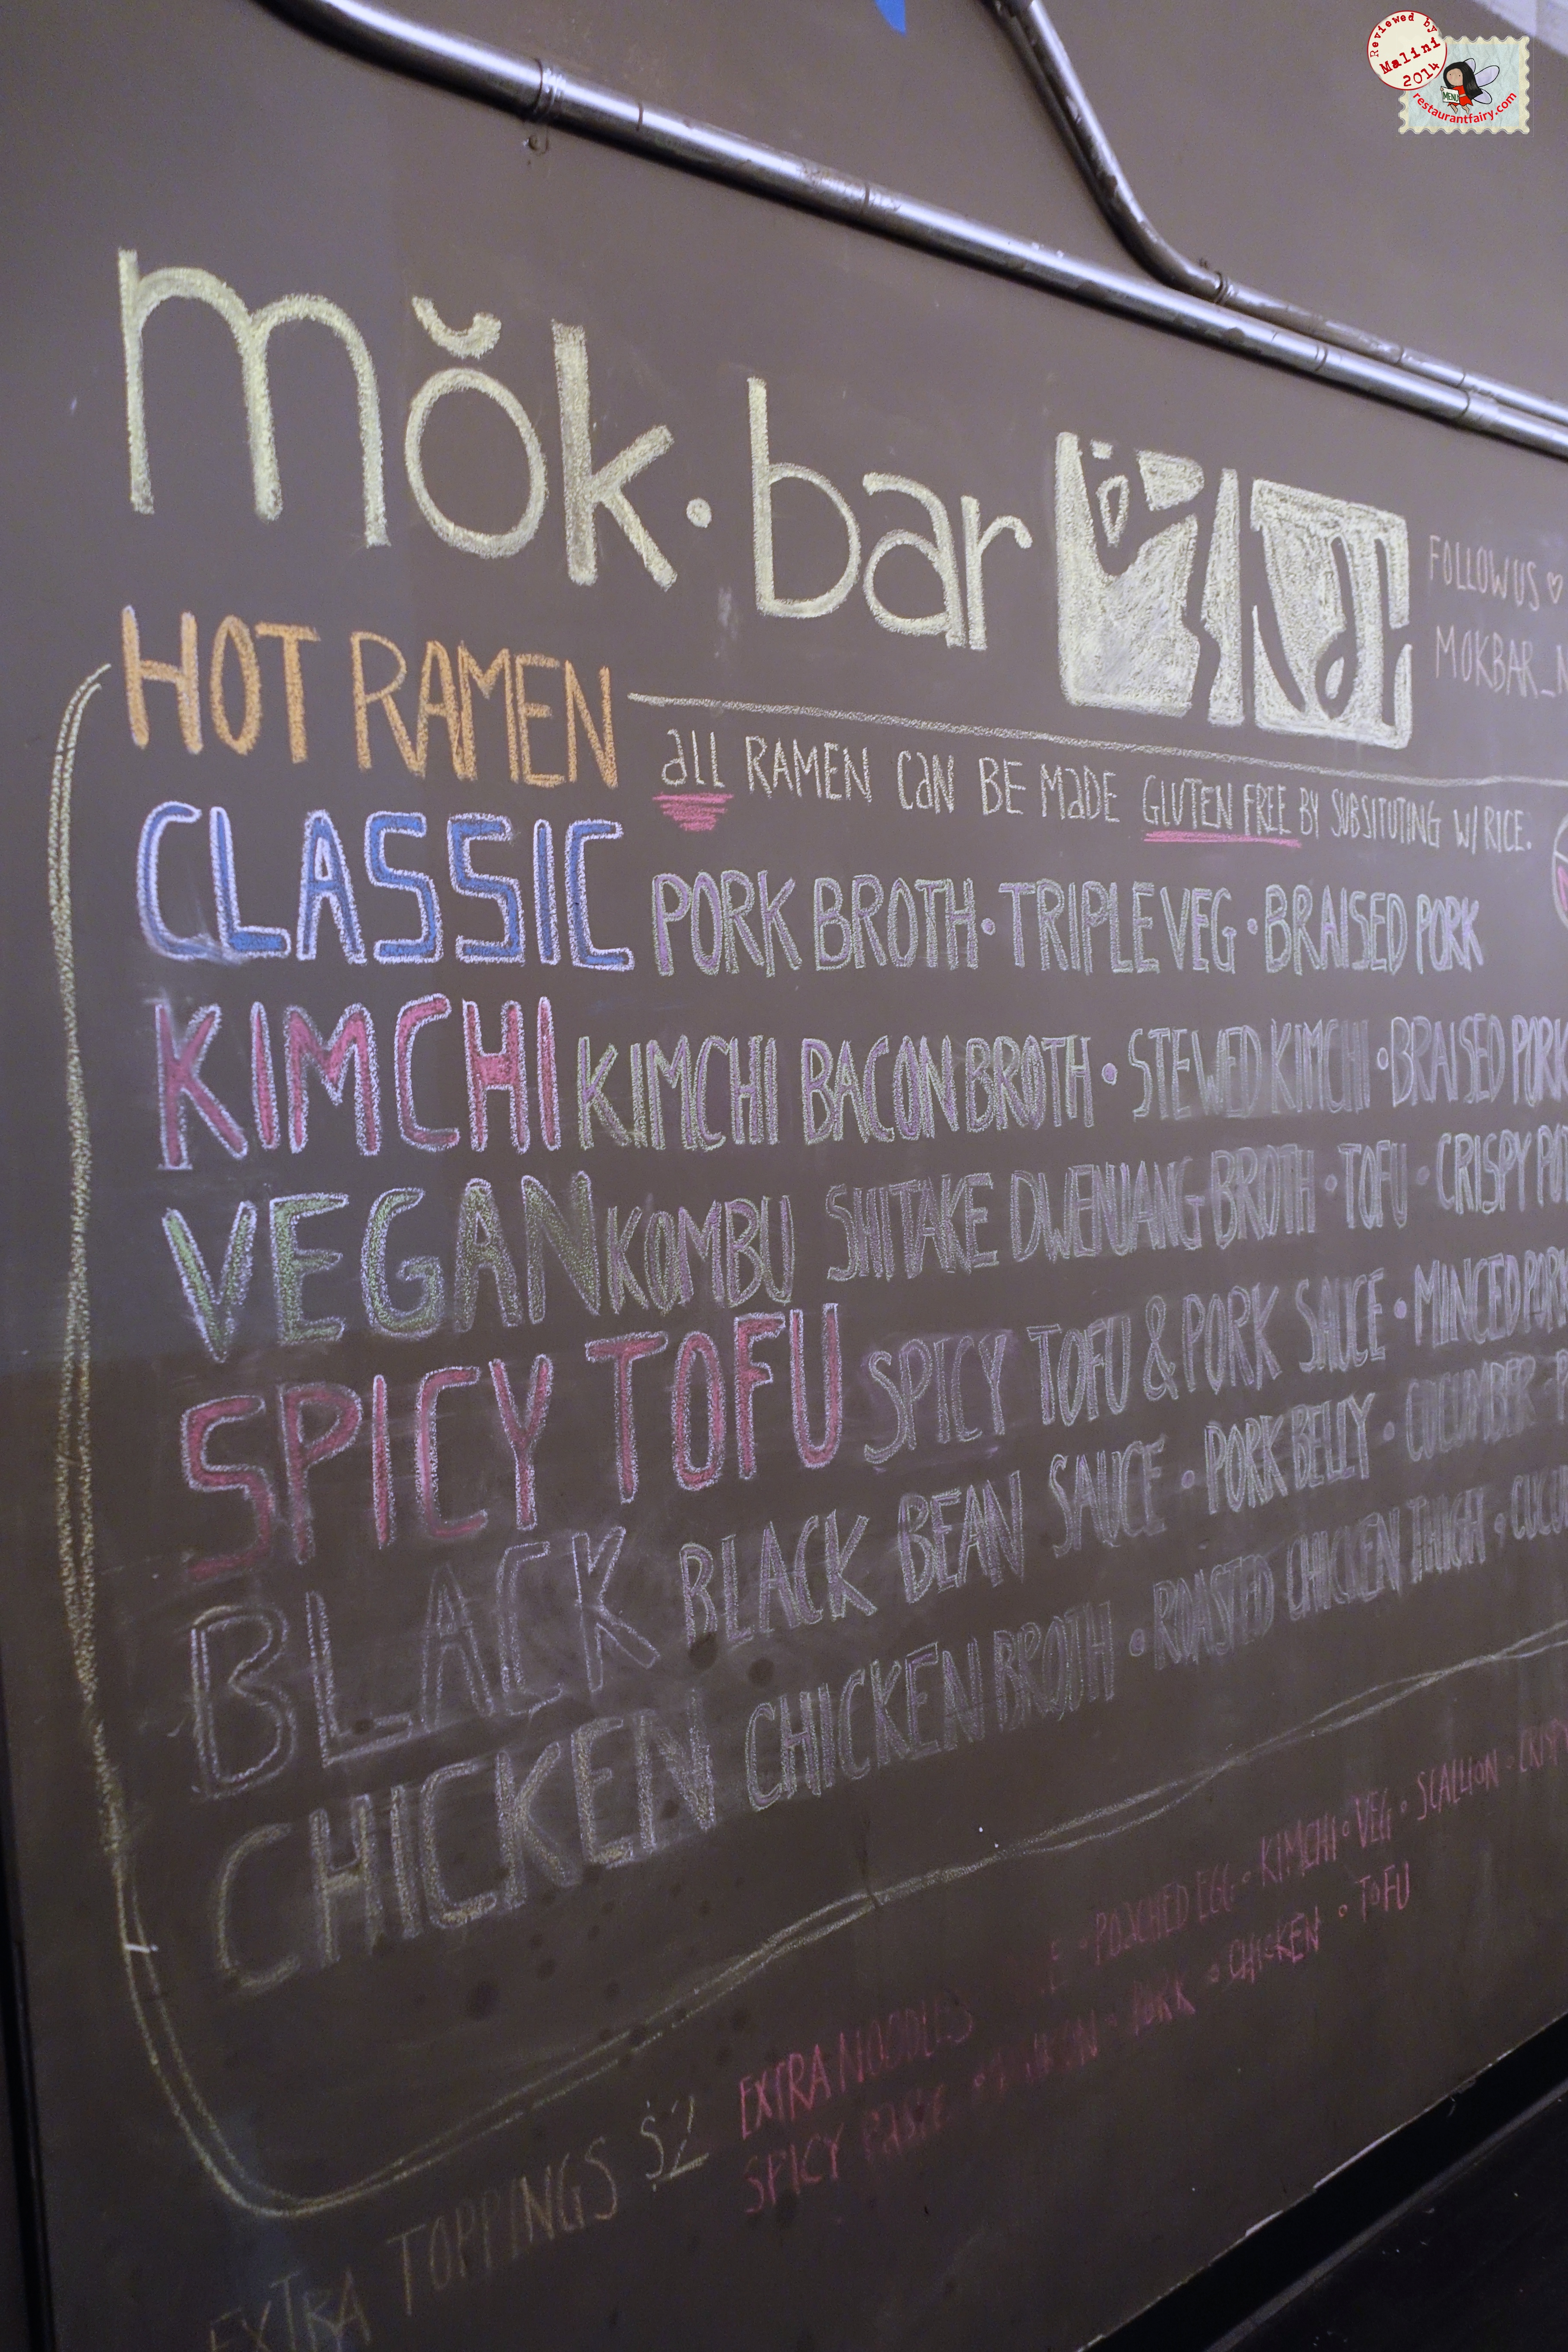 Reviewed by
Malini
2014
MENU
restaurantfairy.com
mŏk·bar
FOLLOW US ♡
MOKBAR_N
HOT RAMEN
all RAMEN CaN BE MaDE GLUTEN FREE BY SUBSITUTING W/ RICE.
CLASSIC PORK BROTH · TRIPLE VEG · BRAISED PORK
KIMCHI KIMCHI BACON BROTH · STEWED KIMCHI · BRAISED PORK
VEGAN KOMBU SHITAKE DWENJANG BROTH · TOFU · CRISPY
SPICY TOFU SPICY TOFU & PORK SAUCE · MINCED PORK
BLACK BLACK BEAN SAUCE · PORK BELLY · CUCUMBER
CHICKEN CHICKEN BROTH · ROASTED CHICKEN THIGH
EXTRA TOPPINGS $2
EXTRA NOODLES · POACHED EGG · KIMCHI · VEG · SCALLION · CRISPY
SPICY PASTE · PORK · CHICKEN · TOFU